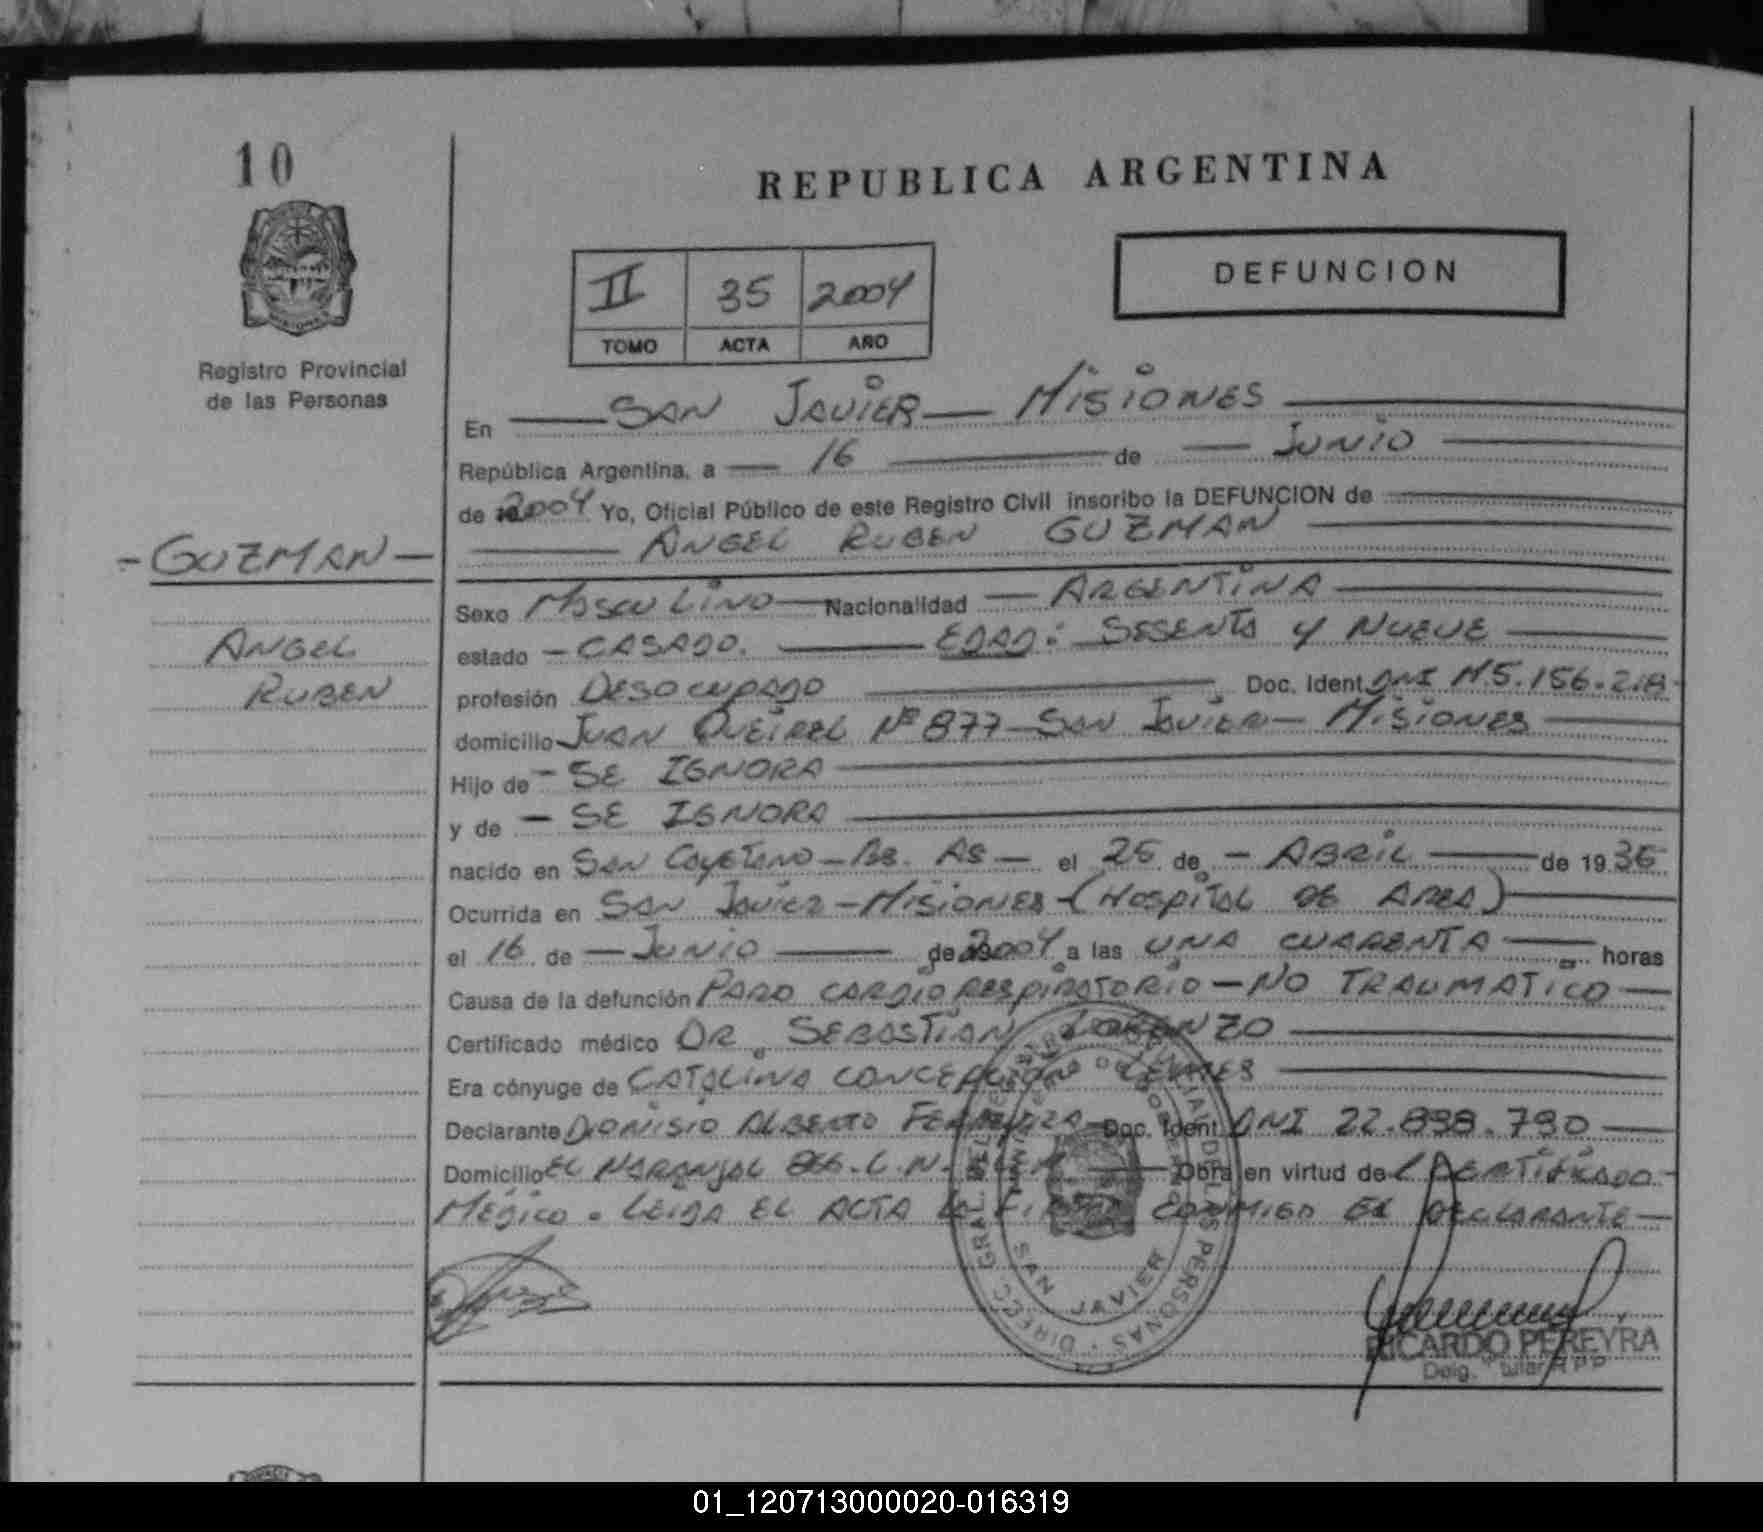 10
REPUBLICA ARGENTINA
DEFUNCION
II 35 2004
TOMO ACTA AÑO
Registro Provincial
de las Personas
En SAN JAVIER — MISIONES
República Argentina, a 16 de JUNIO
de 2004 Yo, Oficial Público de este Registro Civil inscribo la DEFUNCION de
ANGEL RUBEN GUZMAN
- GUZMAN -
ANGEL
RUBEN
Sexo MASCULINO Nacionalidad ARGENTINA
estado - CASADO. EDAD: SESENTA y NUEVE
profesión DESOCUPADO Doc. Ident. DNI M5.156.218
domicilio JUAN QUEIREL Nº 877 - SAN JAVIER - MISIONES
Hijo de - SE IGNORA
y de - SE IGNORA
nacido en SAN CAYETANO - BS. AS - el 25 de - ABRIL de 1935
Ocurrida en SAN JAVIER - MISIONES - (HOSPITAL DE AREA)
el 16 de - JUNIO de 2004 a las UNA CUARENTA horas
Causa de la defunción PARO CARDIO RESPIRATORIO - NO TRAUMATICO
Certificado médico DR. SEBASTIAN LORENZO
Era cónyuge de CATALINA CONCEPCION
Declarante DIONISIO ALBERTO FERREYRA Doc. Ident. DNI 22.898.790
Domicilio EL NARANJAL L.N. Obra en virtud de CERTIFICADO
MEDICO. LEIDA EL ACTA LA FIRMA CONMIGO EL DECLARANTE
DIREC. GRAL. DEL REGISTRO PROVINCIAL DE LAS PERSONAS
SAN JAVIER
RICARDO PEREYRA
01_120713000020-016319